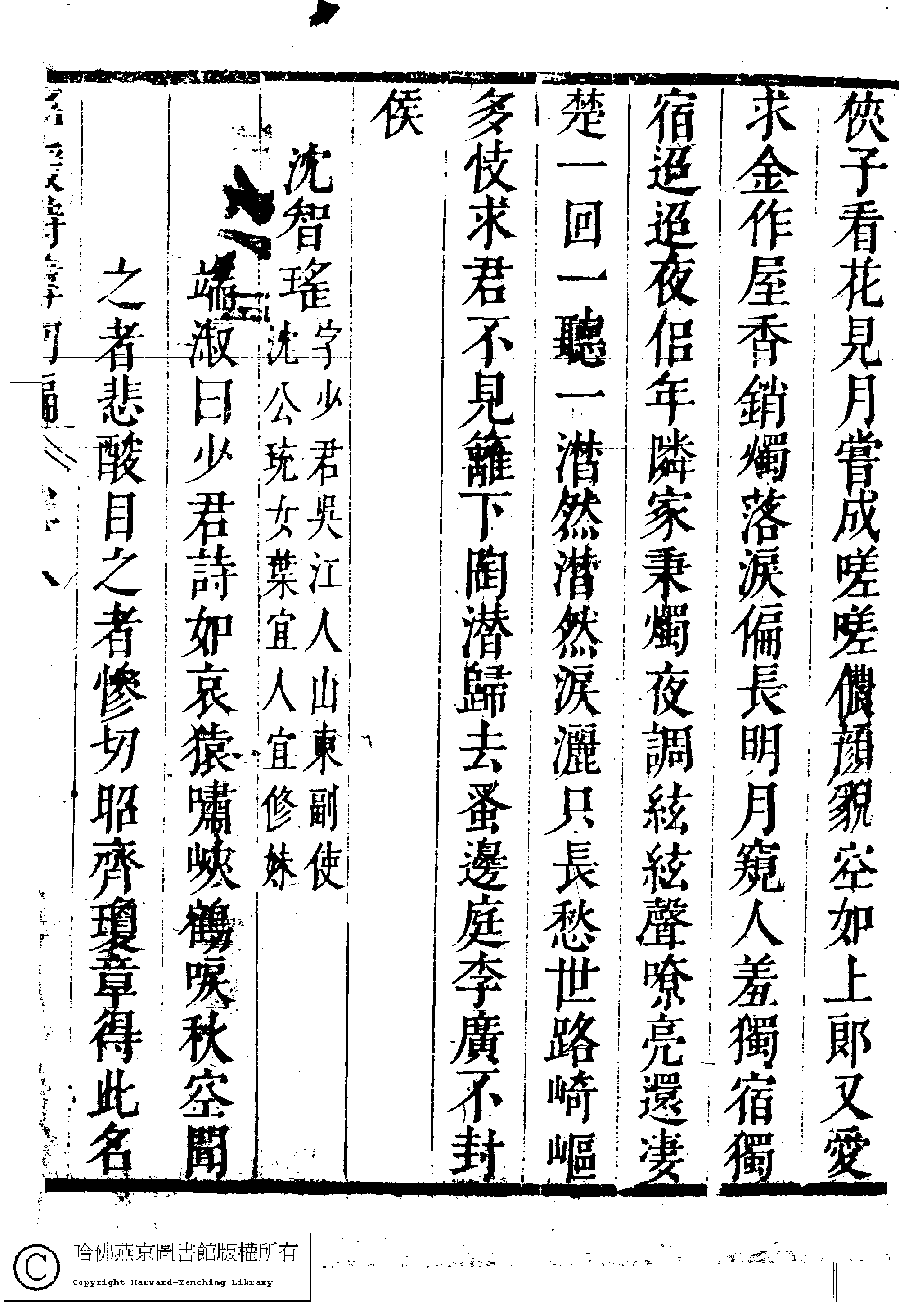 俠子看花見月嘗成嗟嗟儂顔貌空如上郎又愛
求金作屋香銷燭落淚偏長明月窺人羞獨宿獨
宿迢迢夜侣年隣家秉燭夜調絃絃聲嘹亮還凄
楚一回一聽一潸然潸然淚灑只長愁世路崎嶇
多忮求君不見籬下陶潜歸去蚤邊庭李廣不封
侯
沈智瑤字少君吳江人山東副使
沈公珫女葉宜人宜修妹
端淑曰少君詩如哀猿嘯峽鶴唳秋空聞
之者悲酸目之者慘切昭齊瓊章得此名
哈佛燕京圖書館版權所有
Copyright Harvard-Yenching Library